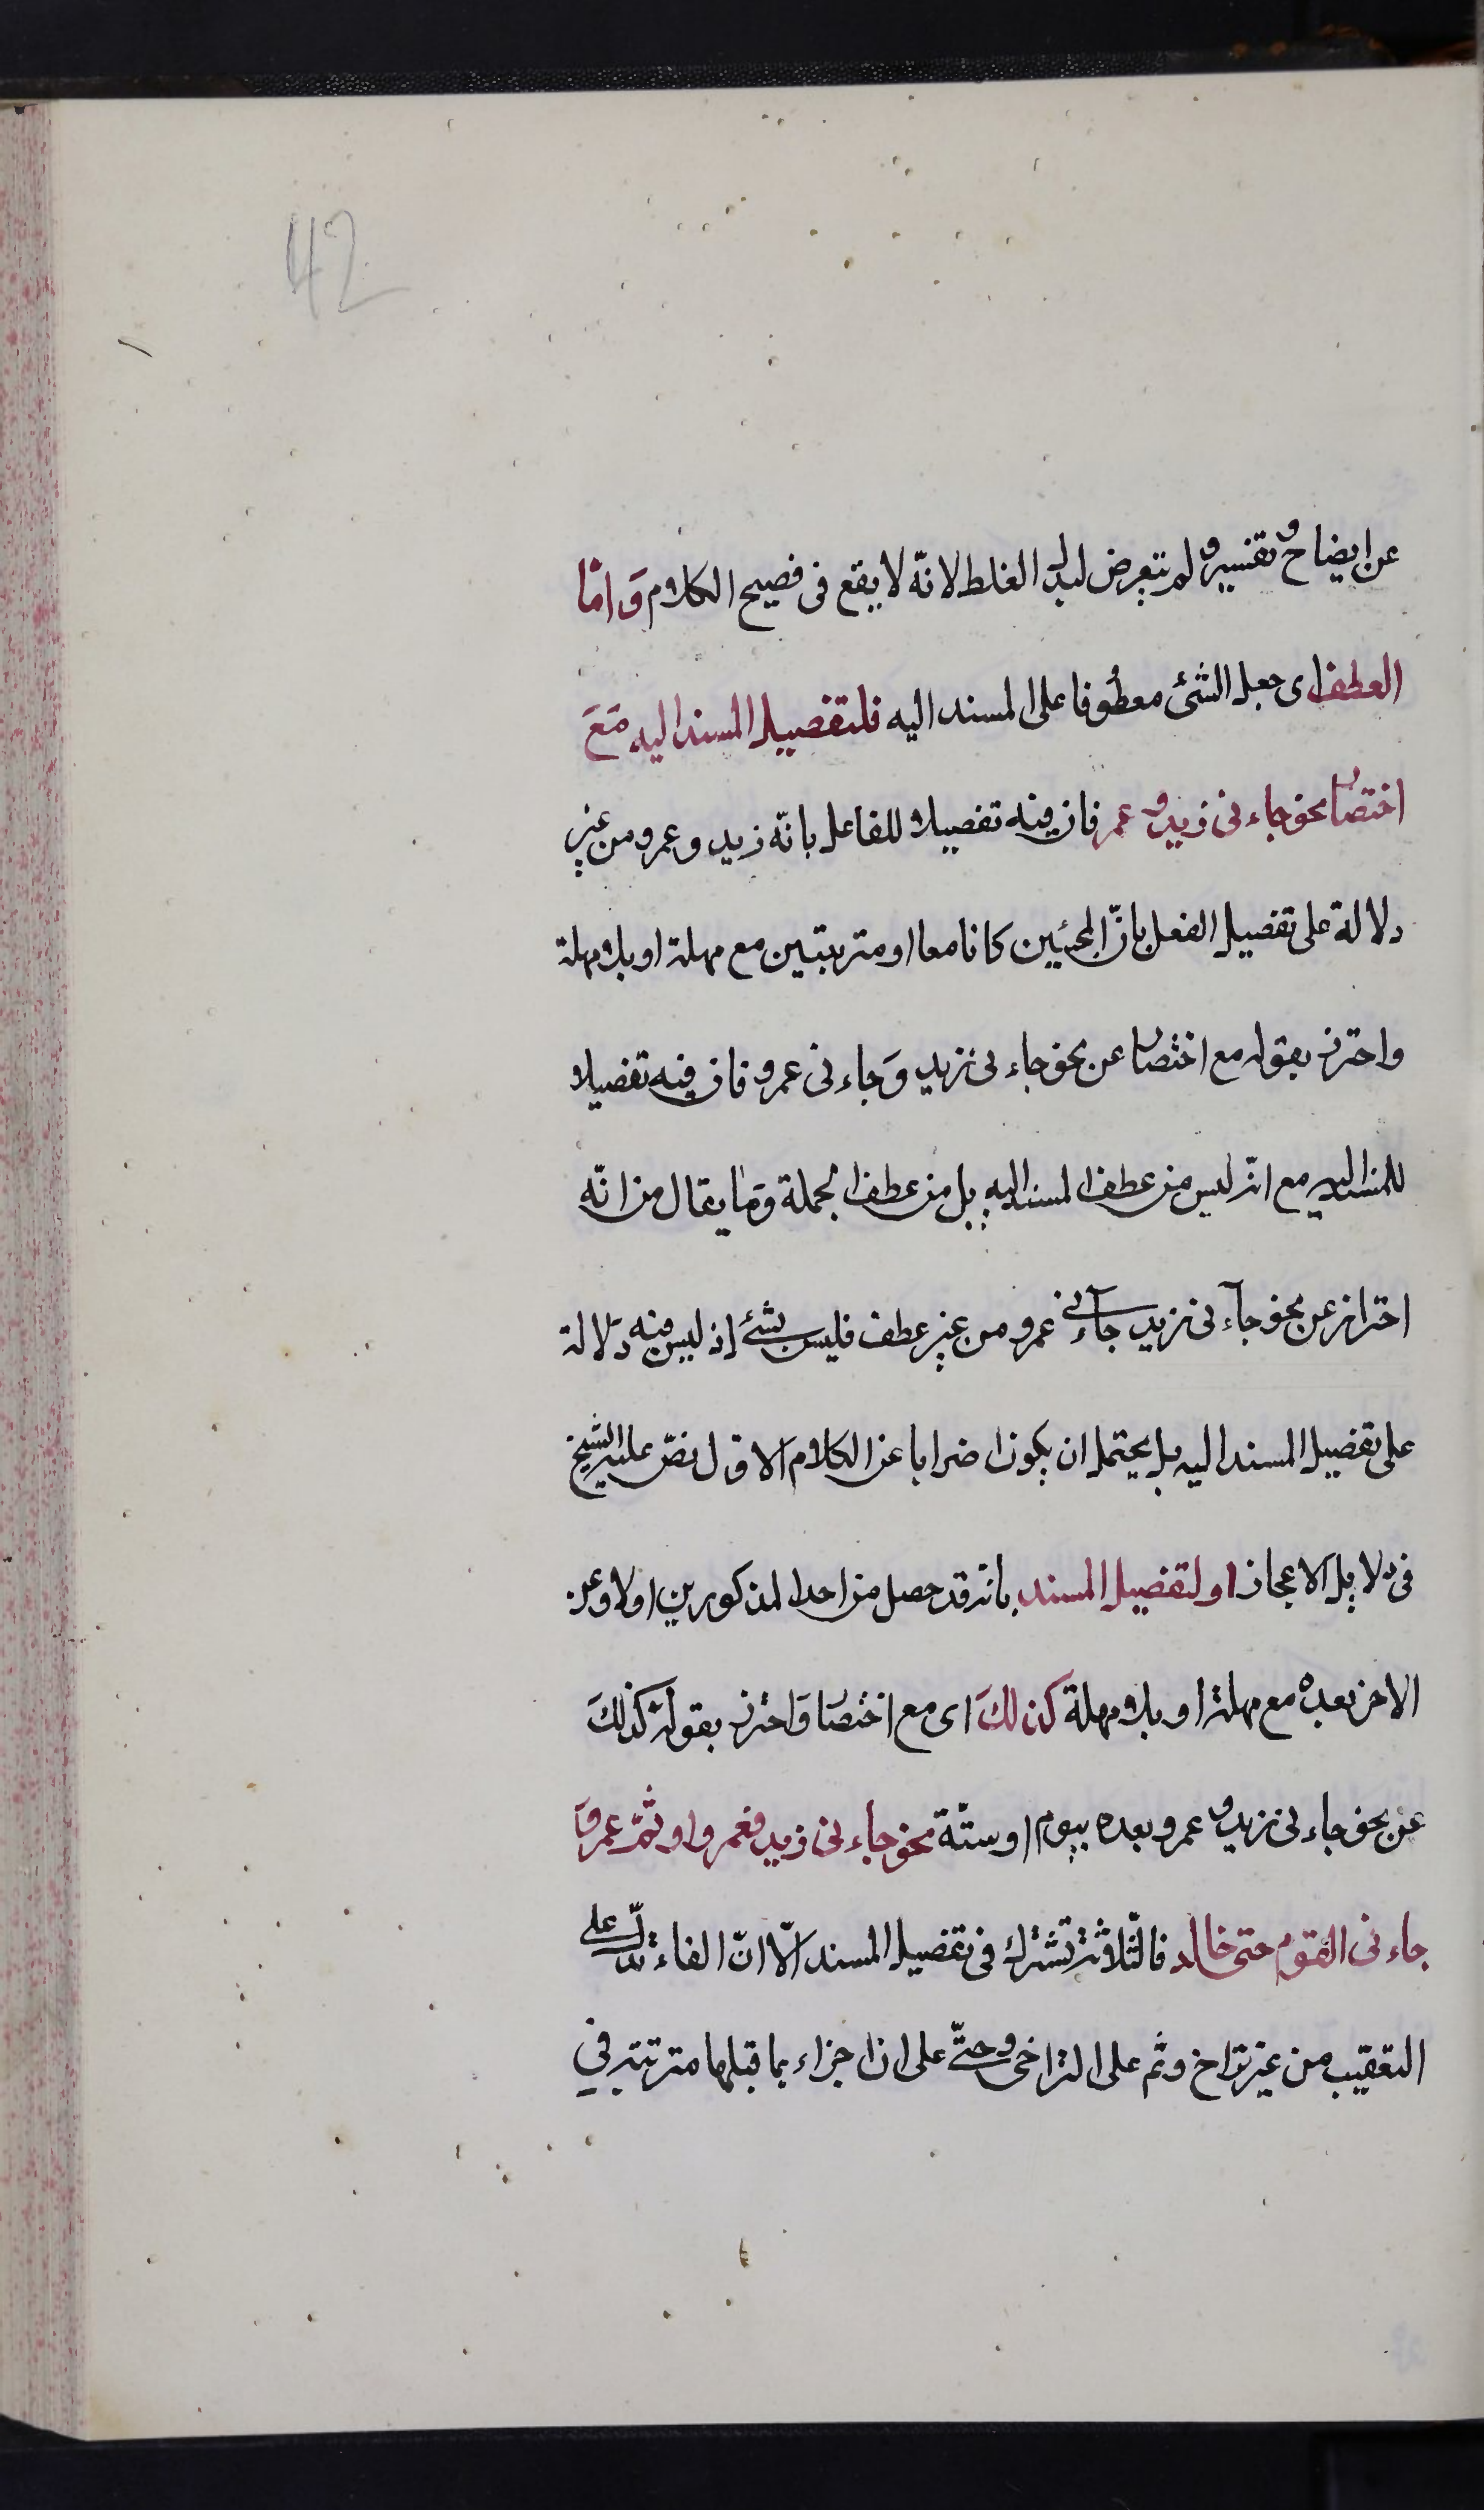 42
عن ايضاح وتفسير ولم يتعرض لبدل الغلط لانّه لا يقع فى فصيح الكلام وَامّا
العطف اى جعل الشئ معطوفا على المسند اليه فلتفصيل المسند اليه مَعَ
اختصار نحو جاءنى زيد وعمر فان فيه تفصيلا للفاعل بانّه زيد وعمرو من غير
دلالة على تفصيل الفعل بانّ المجيئين كانا معا او مترتبتين مع مهلة او بلا مهلة
واحترز بقوله مع اختصار عن نحو جاءنى زيد وَجاءنى عمرو فان فيه تفصيلا
للمسند اليه مع انّه ليس من عطف المسند اليه بل من عطف الجملة وَما يقال من انّه
احتراز عن نحو جآءنى زيد جآءنى عمرو من غير عطف فليس بشئ إذ ليس فيه دَلالة
على تفصيل المسند اليه بل يحتمل ان يكون اضرابا عن الكلام الاوّل نصّ عليه الشيخ
فى دلايل الاعجاز او لتفصيل المسند بانّه قد حصل من احد المذكورين اولا وعن
الاخر بعده مع مهلة او بلا مهلة كذلكَ اى مع اختصار وَاحترز بقوله كذلكَ
عن نحو جاءنى زيد وعمرو بعده بيوم او سنّة نحو جاءنى زيد فعمرو او ثمّ عمرو وَ
جاءنى القوم حتى خالد فالثّلاثة تشترك فى تفصيل المسند الّا انّ الفاء تدلّ على
التعقيب من غير تراخ وثم على التراخى وحتّى على ان اجزاء ما قبلها مترتبة في